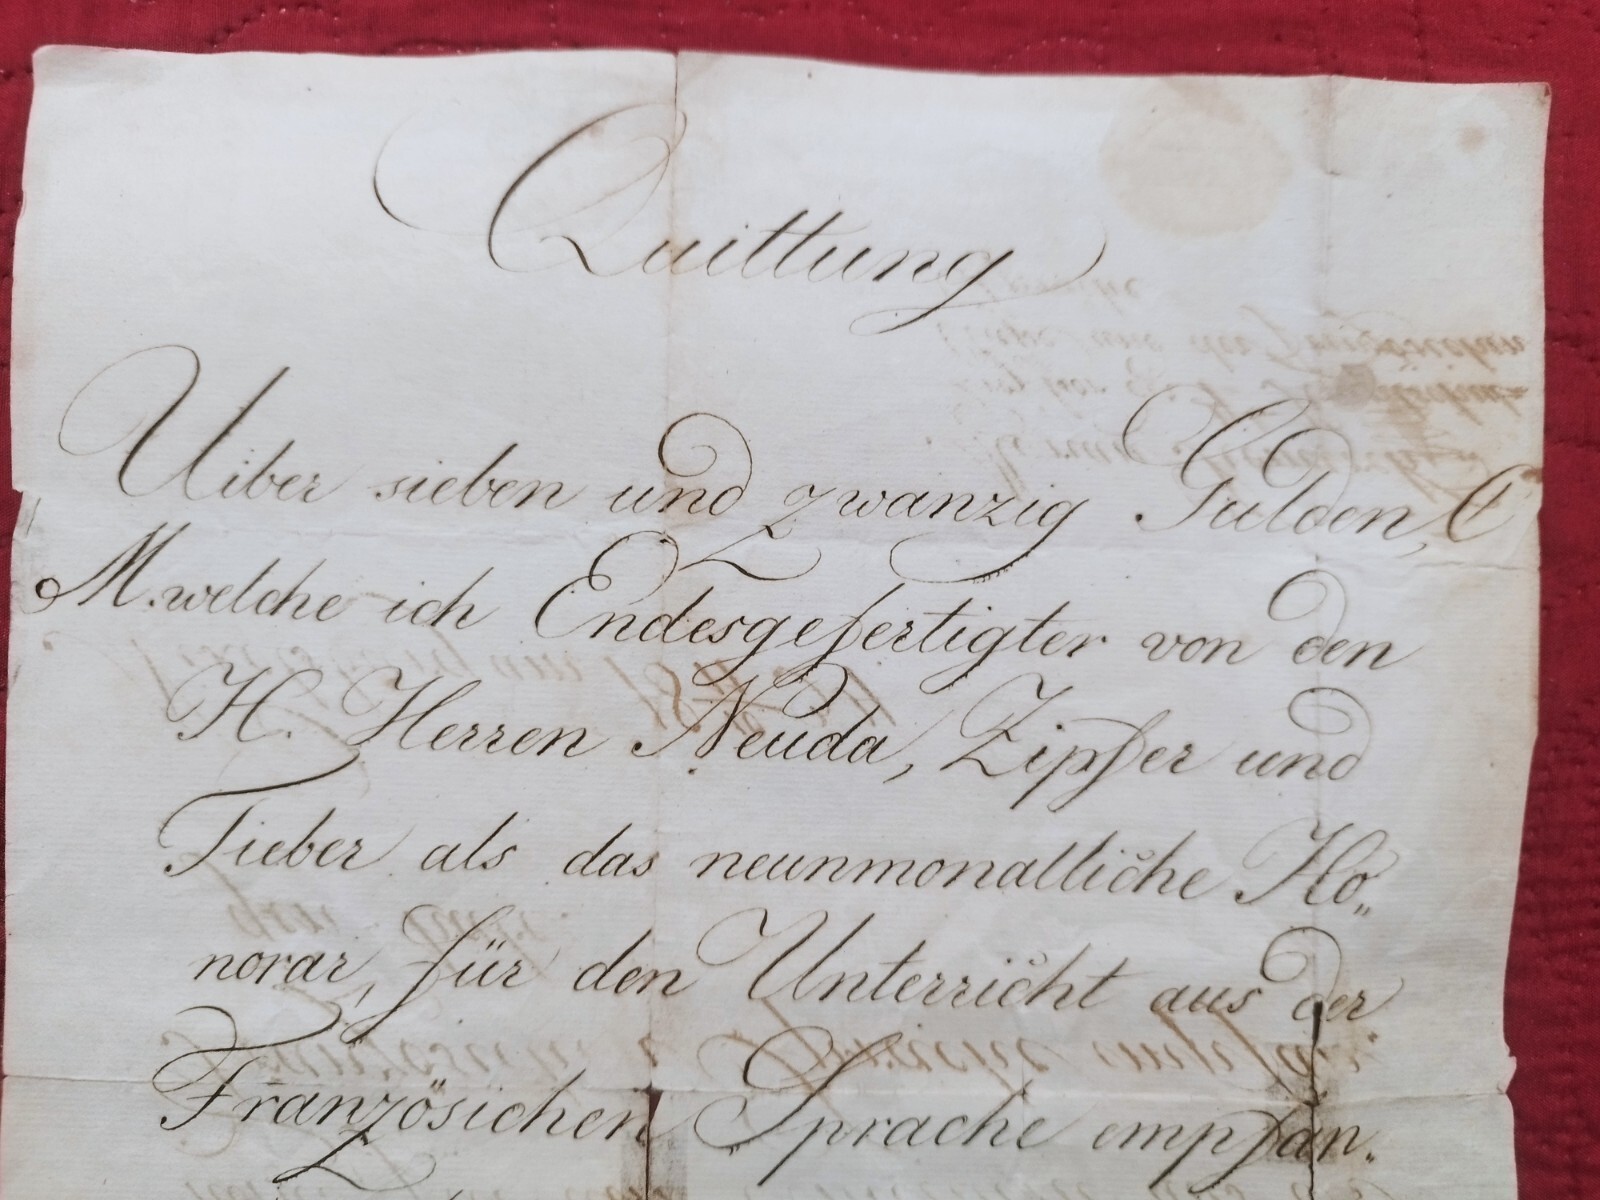 Quittung
Uiber sieben und zwanzig Gulden, C
M. welche ich Endesgefertigter von den
H. Herren Neuda, Zipfer und
Tieber als das neunmonatliche Ho„
norar, für den Unterricht aus der
Französichen Sprache empfan„